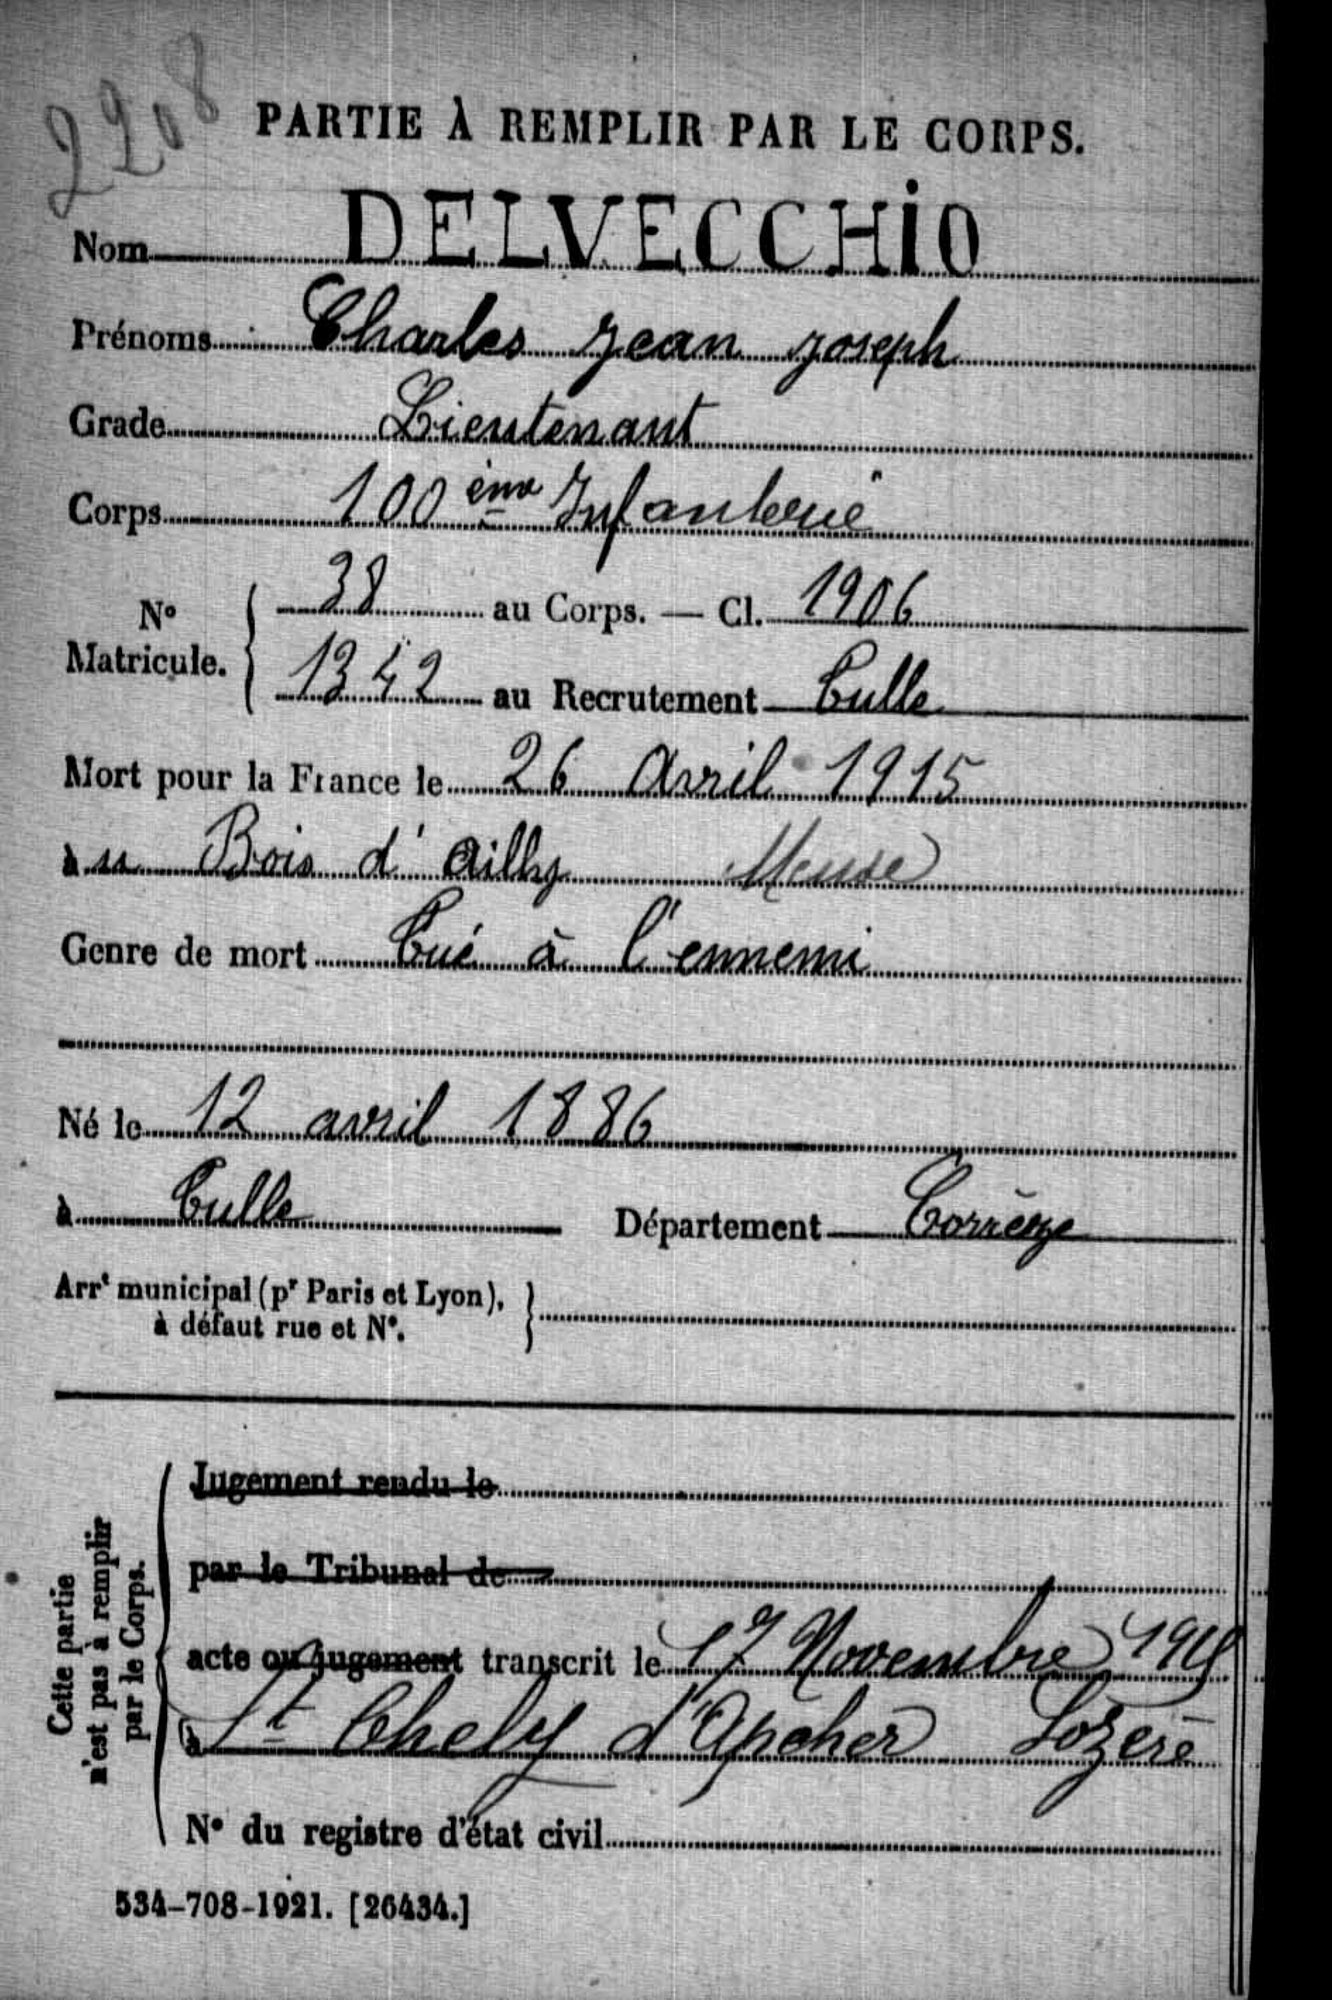 2208
PARTIE À REMPLIR PAR LE CORPS.
Nom DELVECCHIO
Prénoms Charles Jean Joseph
Grade Lieutenant
Corps 100 ème Infanterie
N° Matricule. { 38 au Corps. — Cl. 1906
1342 au Recrutement Tulle
Mort pour la France le 26 Avril 1915
à u Bois d'Ailly Meuse
Genre de mort Tué à l'ennemi
Né le 12 avril 1886
à Tulle Département Corrèze
Arrt municipal (pr Paris et Lyon),
à défaut rue et N°.
Cette partie
n'est pas à remplir
par le Corps.
Jugement rendu le
par le Tribunal de
acte ou jugement transcrit le 17 Novembre
à St Chely d'Apcher Lozère
N° du registre d'état civil
534-708-1921. [26434.]